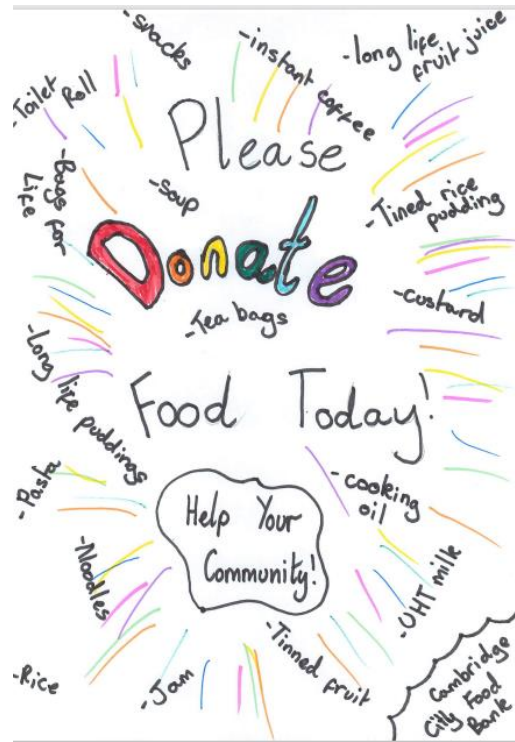 -snacks
-instant coffee
-long life
fruit juice
-Toilet
Roll
Please
-Bags for
Life
-Soup
-Tined rice
pudding
Donate
-Tea bags
-custard
-Long life puddings
Food Today!
-Pasta
-cooking
oil
Help Your
Community!
-Noodles
-UHT milk
-Rice
-Jam
-Tinned fruit
Cambridge
City Food
Bank